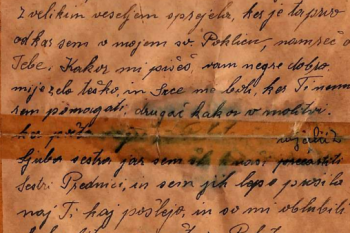 z velikim veseljem sprejela, ker je to prvo
odkar sem v mojem sv. Poklicu, namreč o
Tebe. Kakor mi pišeš, vam negre dobro,
mi je zelo težko, in Srce me boli, ker Ti nem
rem pomagati, drugač kakor v molitvi.
ljuba sestra jaz sem
Sestri Prednici, in sem jih lepo prosila
naj Ti kaj pošlejo, in so mi obljubili